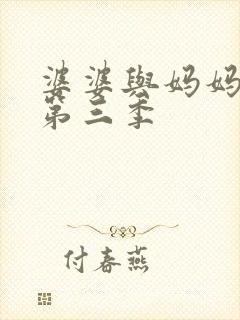 婆婆與妈妈
第三季
付春燕